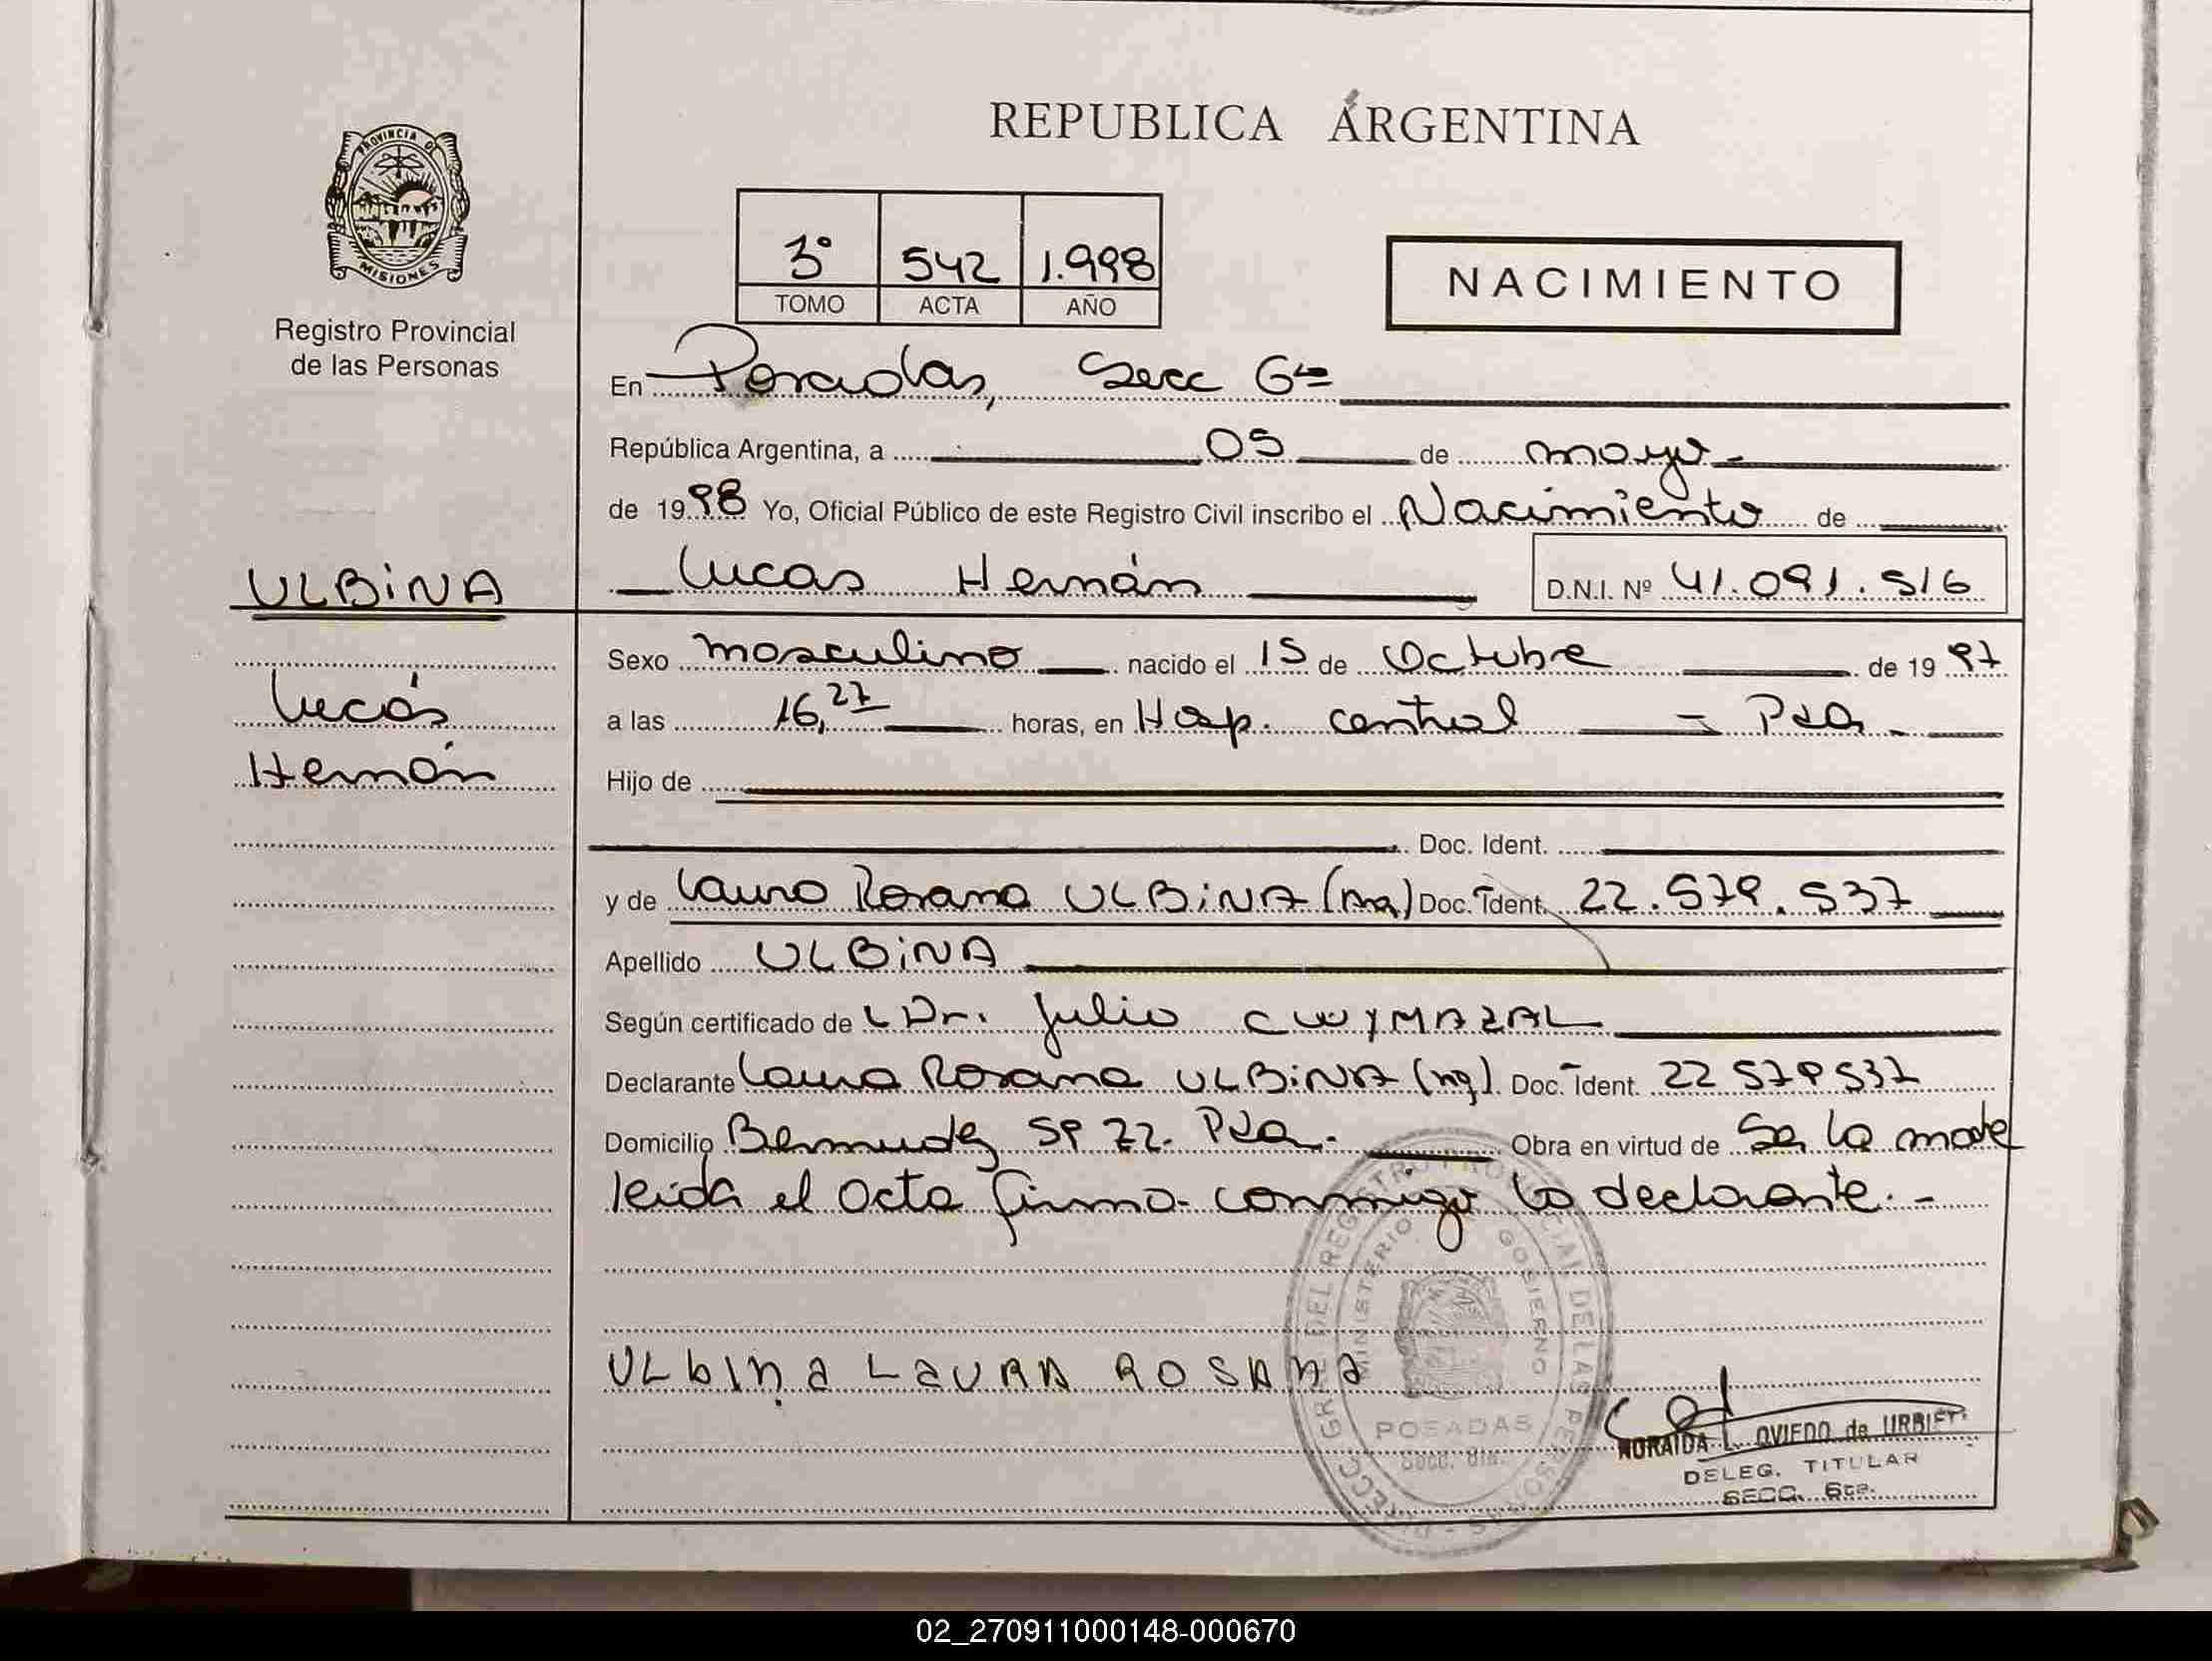 REPUBLICA ARGENTINA
PROVINCIA DE
MISIONES
Registro Provincial
de las Personas
3° 542 1.998
TOMO ACTA AÑO
NACIMIENTO
En Posadas, Secc 6ta
República Argentina, a 05 de mayo
de 1998 Yo, Oficial Público de este Registro Civil inscribo el Nacimiento de
Lucas Hernán D.N.I. Nº 41.091.516
ULBiNA
Lucas
Hernán
Sexo masculino nacido el 15 de Octubre de 1997
a las 16,27 horas, en Hosp. central - Pdas.
Hijo de
Doc. Ident.
y de Laura Rosana ULBiNA (Arg) Doc. Ident. 22.579.537
Apellido ULBiNA
Según certificado de Dr. Julio CWYMAZAL
Declarante Laura Rosana ULBiNA Doc. Ident. 22 579 537
Domicilio Bermudez Obra en virtud de Ser la madre
leida el acta firma conmigo la declarante. -
ULbINa LaURA ROSANa
MINISTERIO GOBIERNO
POSADAS
Secc. 6ta.
NORAIDA L. OVIEDO de URBIET
DELEG. TITULAR
SECC. 6ta.
02_270911000148-000670